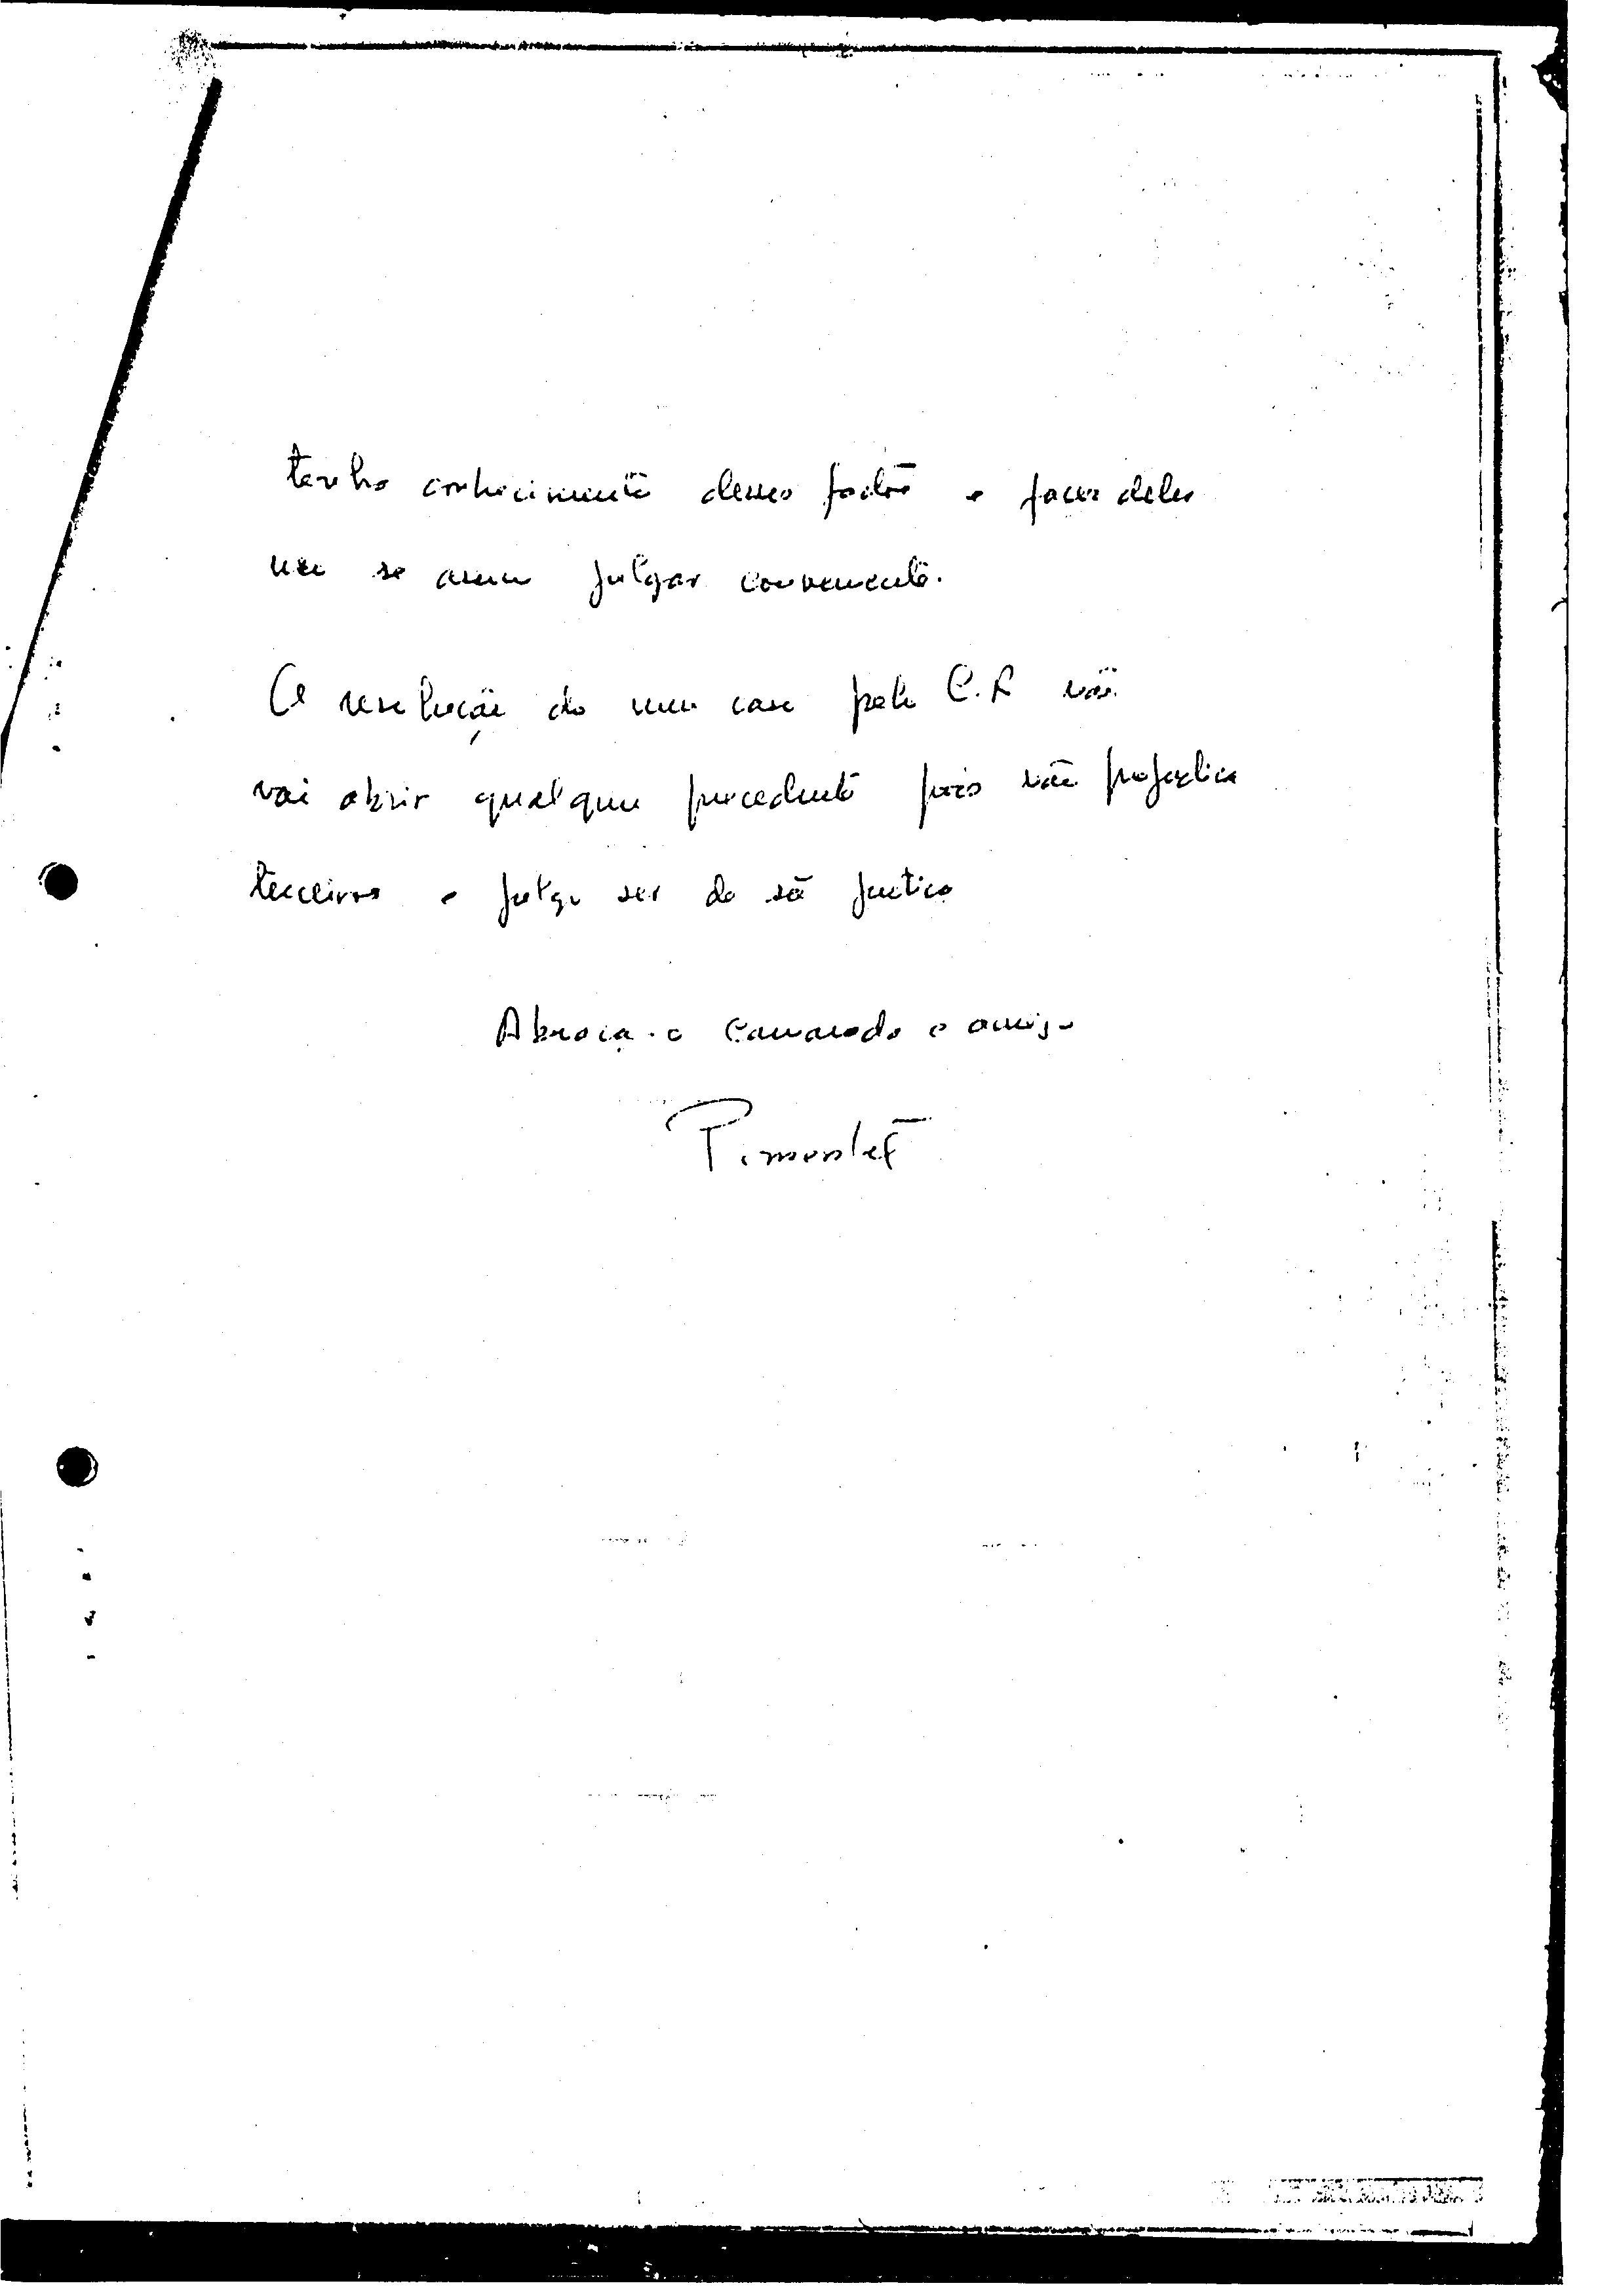 tenha conhecimento desses factos e fazer deles
uso se assim julgar conveniente.
A resolução do meu caso pelo C.R não
vai abrir qualquer precedente pois não prejudica
terceiros e julgo ser de sã justiça
Abraça-o camarada e amigo
Pimentel